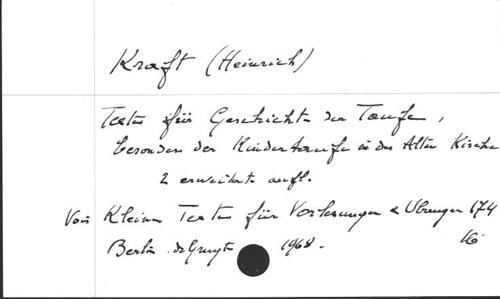 Kraft (Heinrich)
Texte für Geschichte der Taufe,
besonders der Kindertaufe in der Alten Kirche
2 erweiterte aufl.
Voir Kleine Texte für Vorlesungen & Übungen 174
Berlin de Gruyter 1968.